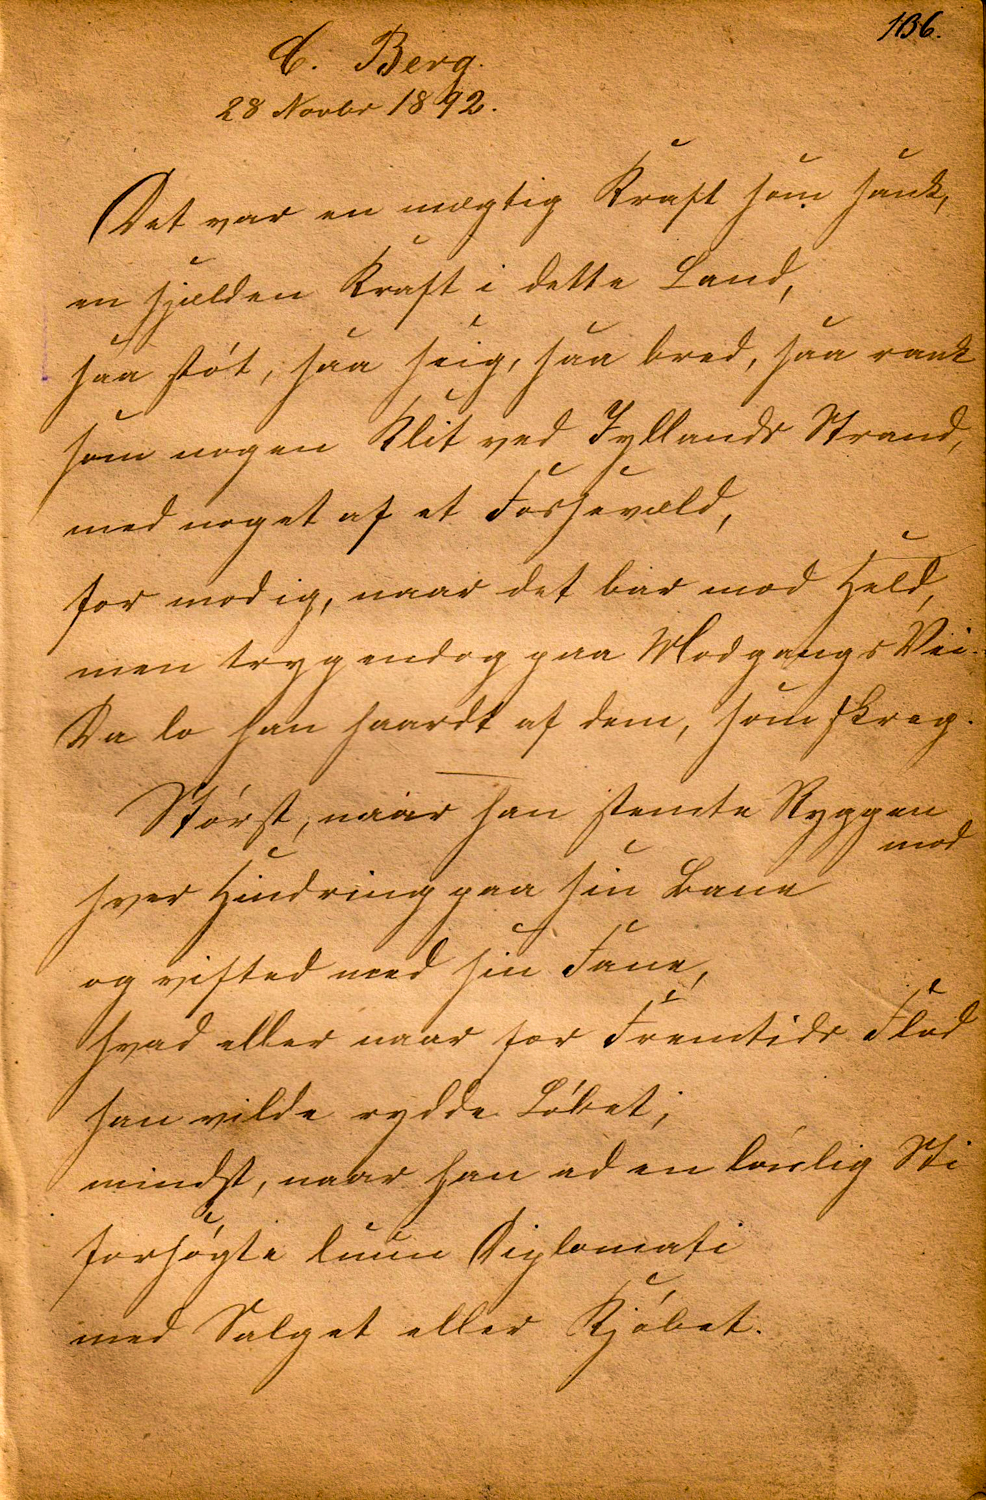 136.
C. Berg.
28 Novbr 1892.
Det var en mægtig Kraft som sank,
en sjælden Kraft i dette Land,
saa støt, saa seig, saa bred, saa rank
som nogen Klit ved Jyllands Strand,
med noget af et Fossevæld,
for modig, naar det bar mod Held,
men tryg endog paa Modgangs Vei.
Da lo han haardt af dem, som skreg.
Störst, naar han stemte Ryggen
mod
hver Hindring paa sin Bane
og vifted med sin Fane,
hvad eller naar for Fremtids Flod
han vilde rydde Löbet;
mindst, naar han ad en lönlig Sti
forsögte luun Diplomati
med Salget eller Kjöbet.